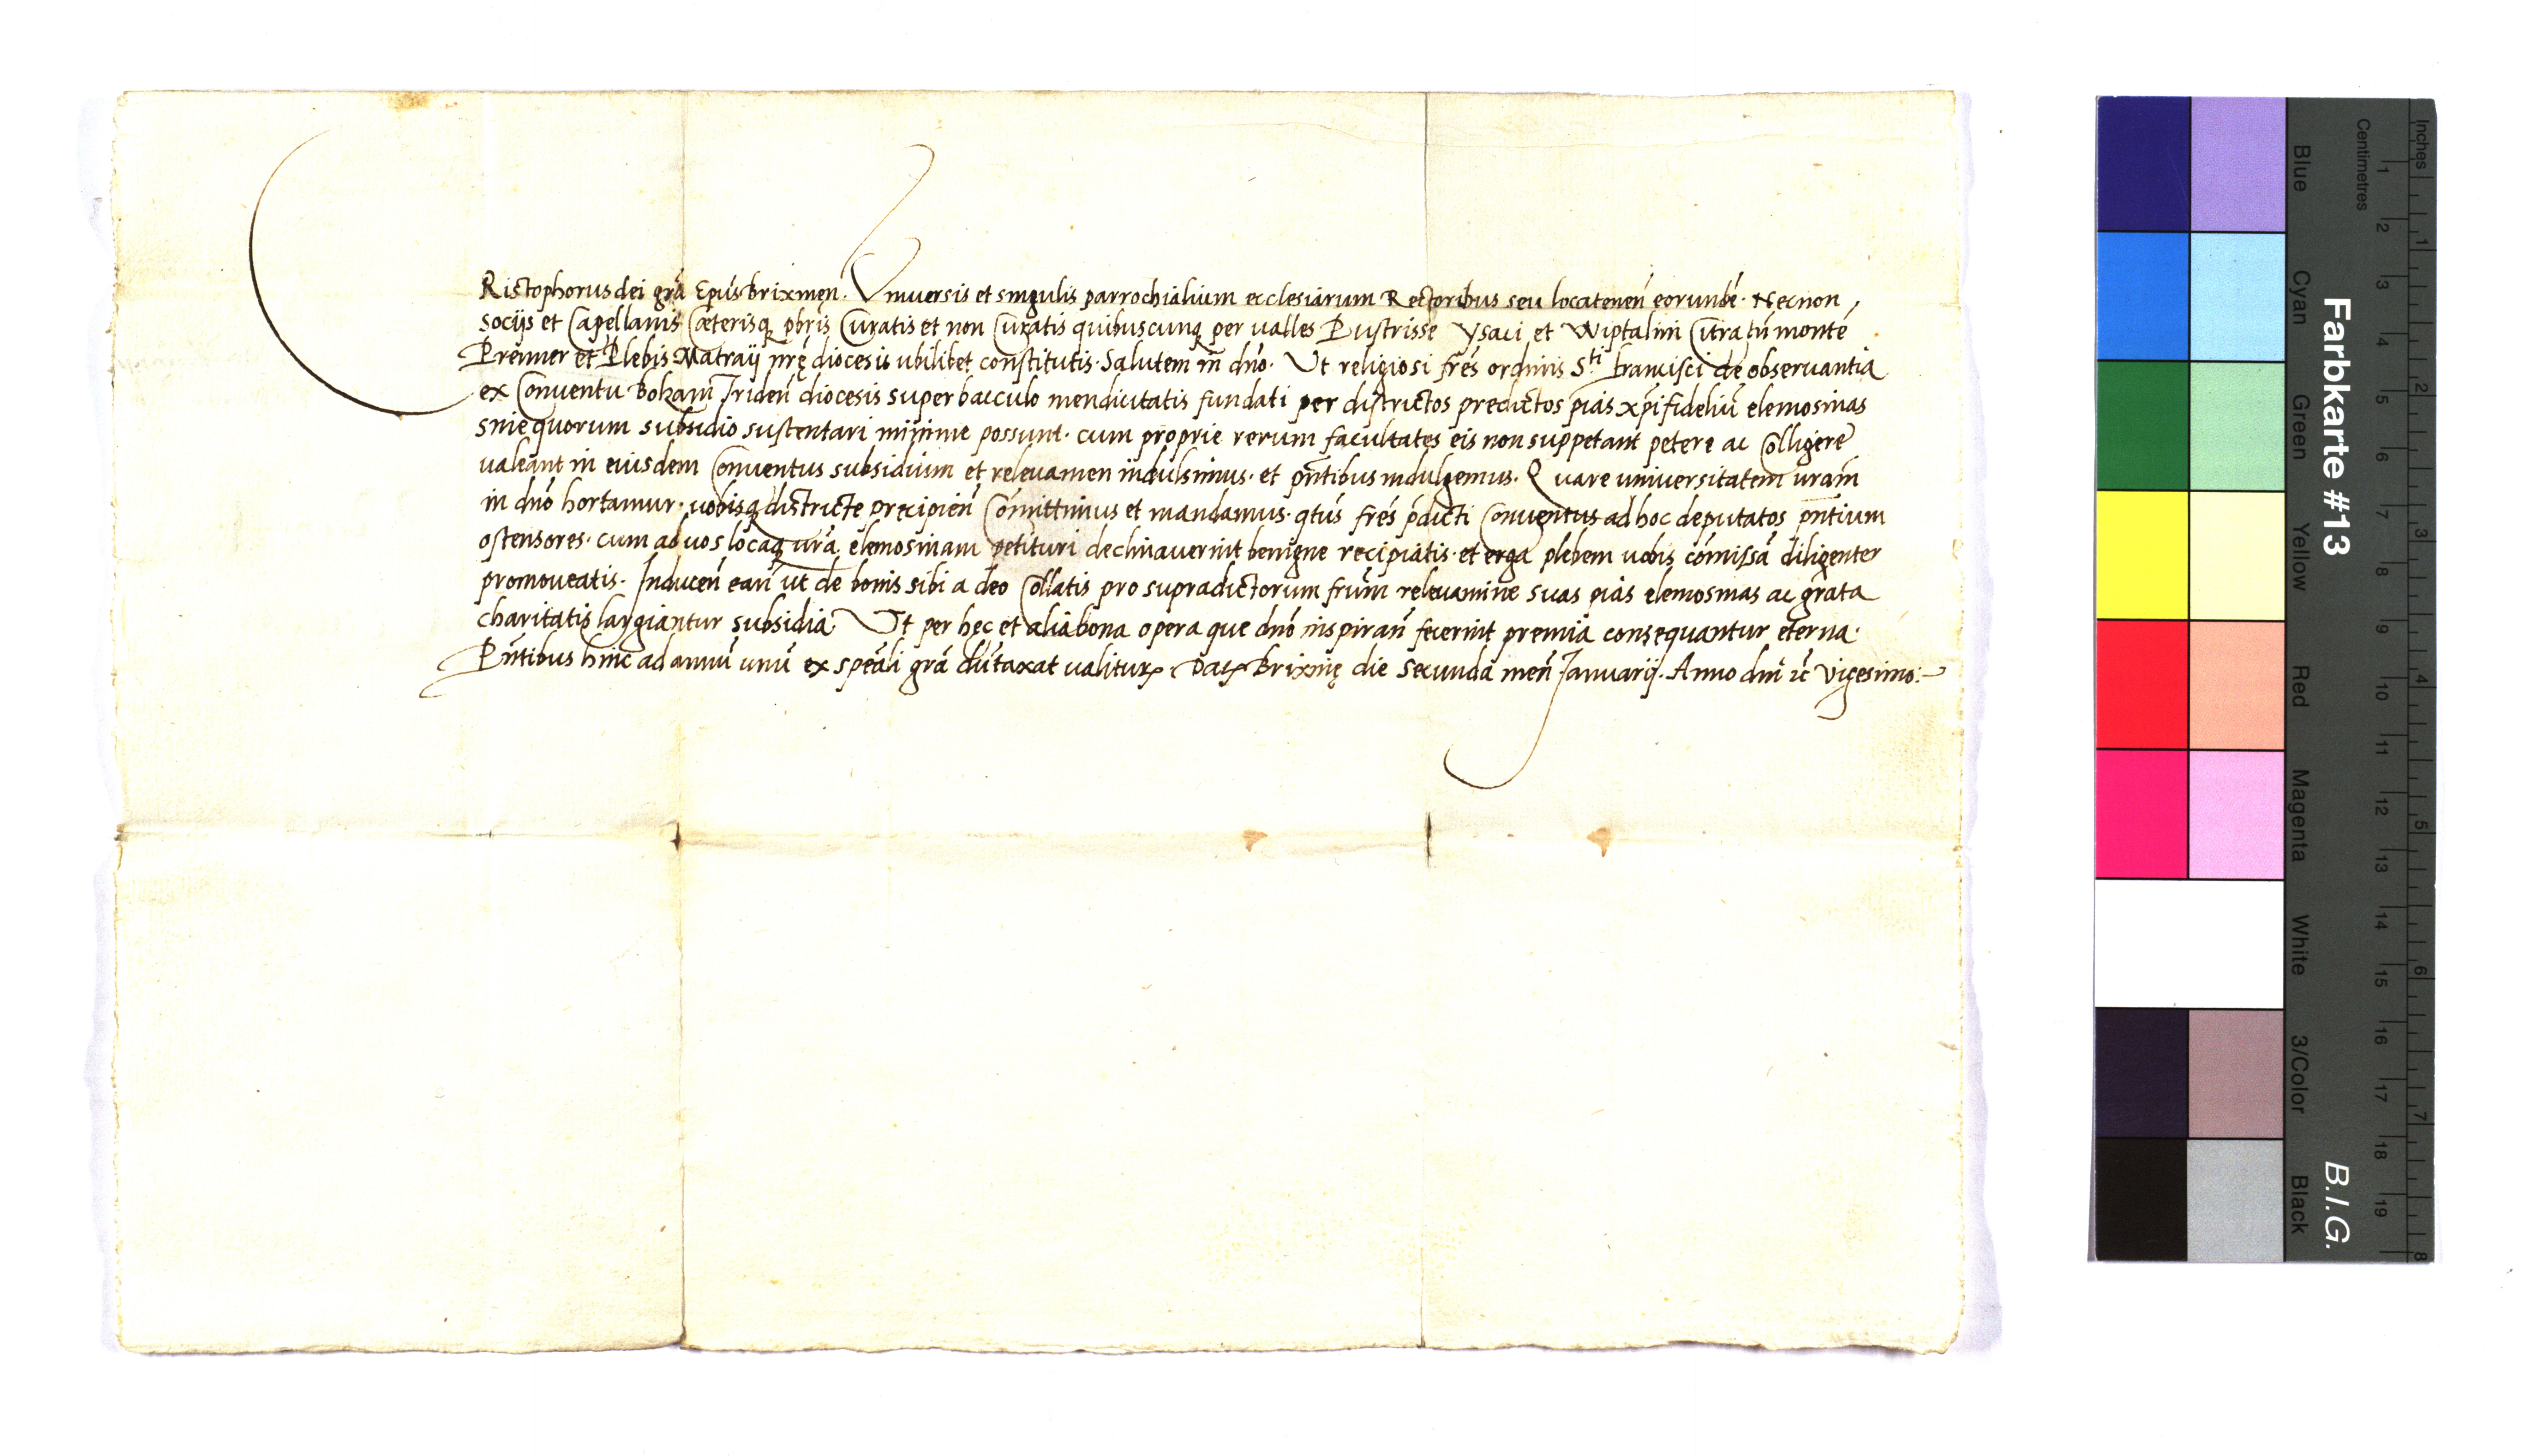 CRistophorus dei grã Epũs brixineñ. Vniuersis et singulis parrochialium ecclesiarum Rectoribus seu locateneñ eorundẽ. Necnon
socijs et Capellanis Cæterisq pbris Curatis et non Curatis quibuscunq per ualles Pustrisse Ysaci et Wiptalim Citra tñ montẽ
Prenner et Plebis Matraij nrę diocesis ubilibet constitutis. Salutem in dno. Ut religiosi frẽs ordinis Sti francisci de obseruantia
ex Conuentu Bolzani Trideñ diocesis super bacculo mendicitatis fundati per districtos predictos pias xpifideliũ elemosinas
sine quorum subsidio sustentari minime possunt. cum proprie rerum facultates eis non suppetant petere ac Colligere
ualeant in eiusdem Conuentus subsidium et releuamen indulsimus. et pñtibus indulgemus. Quare uniuersitatem uram
in dno hortamur. uobisq districte precipieñ Comittimus et mandamus. qtus frẽs pdicti Conuentus ad hoc deputatos pñtium
ostensores. cum ad uos locaq ura elemosinam petituri declinauerint benigne recipiatis. et erga plebem uobis comissã diligenter
promoueatis. Induceñ eañ ut de bonis sibi a deo Collatis pro supradictorum frum releuamine suas pias elemosinas ac grata
charitatis largiantur subsidia Ut per hęc et alia bona opera que dno inspirañ fecerint premia consequantur eterna.
Pñtibus hinc ad annũ unũ ex speali grã dũtaxat ualitur. Dat Brixinę die Secunda meñ Januarij. Anno dni ic vigesimo.

Farbkarte #13
B.I.G.
Inches 1 2 3 4 5 6 7 8
Centimetres 1 2 3 4 5 6 7 8 9 10 11 12 13 14 15 16 17 18 19
Blue
Cyan
Green
Yellow
Red
Magenta
White
3/Color
Black